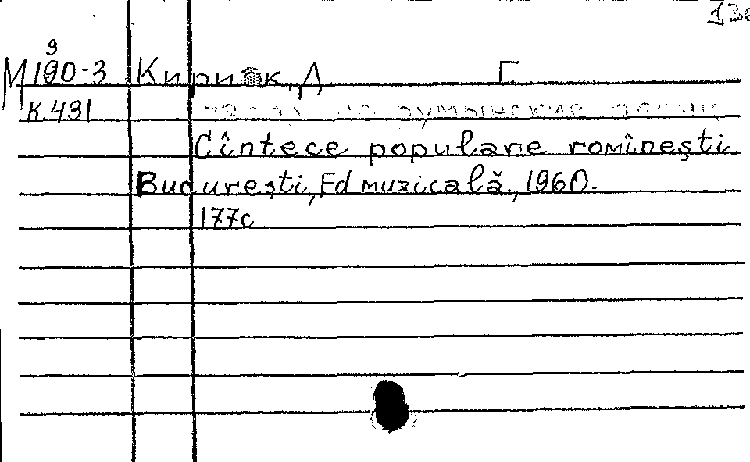 9
М190-3 Кириак, Д Г
К 431
Cîntece populare romîneşti
Bucureşti, Ed muzicală, 1960.
177с